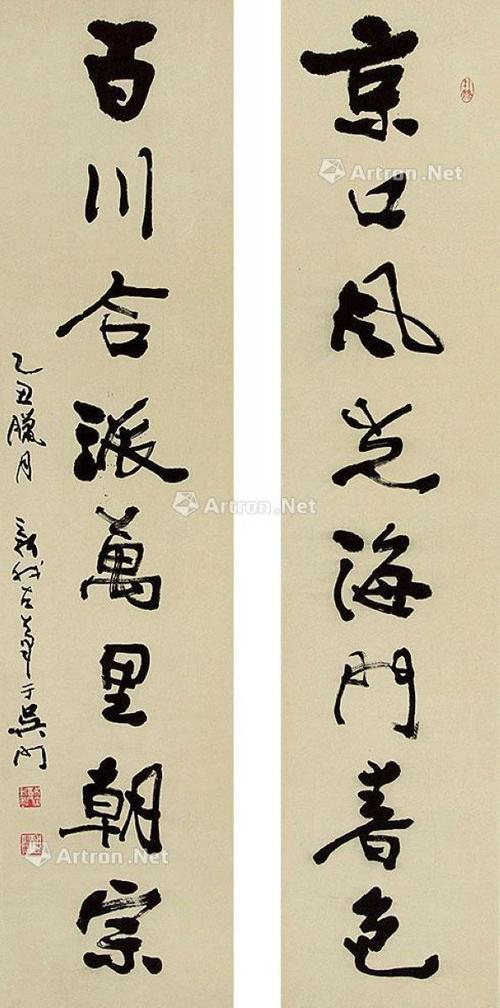 京口风光海门春色
百川合派萬里朝宗
乙丑臘月 新我左筆于吴門
Artron.Net
Artron.Net
Artron.Net